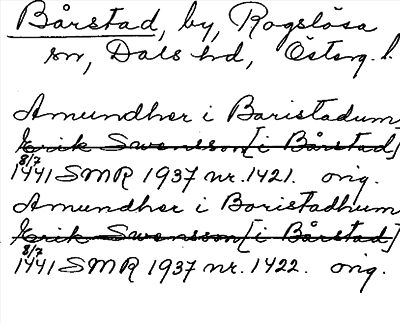 Bårstad, by, Rogslösa
sn, Dals hd, Österg. l.
Amundher i Baristadum
Erik Swensson [i Bårstad]
8/7
1441 SMR 1937 nr. 1421. orig.
Amundher i Boristadhum
Erik Swensson [i Bårstad]
8/7
1441 SMR 1937 nr. 1422. orig.